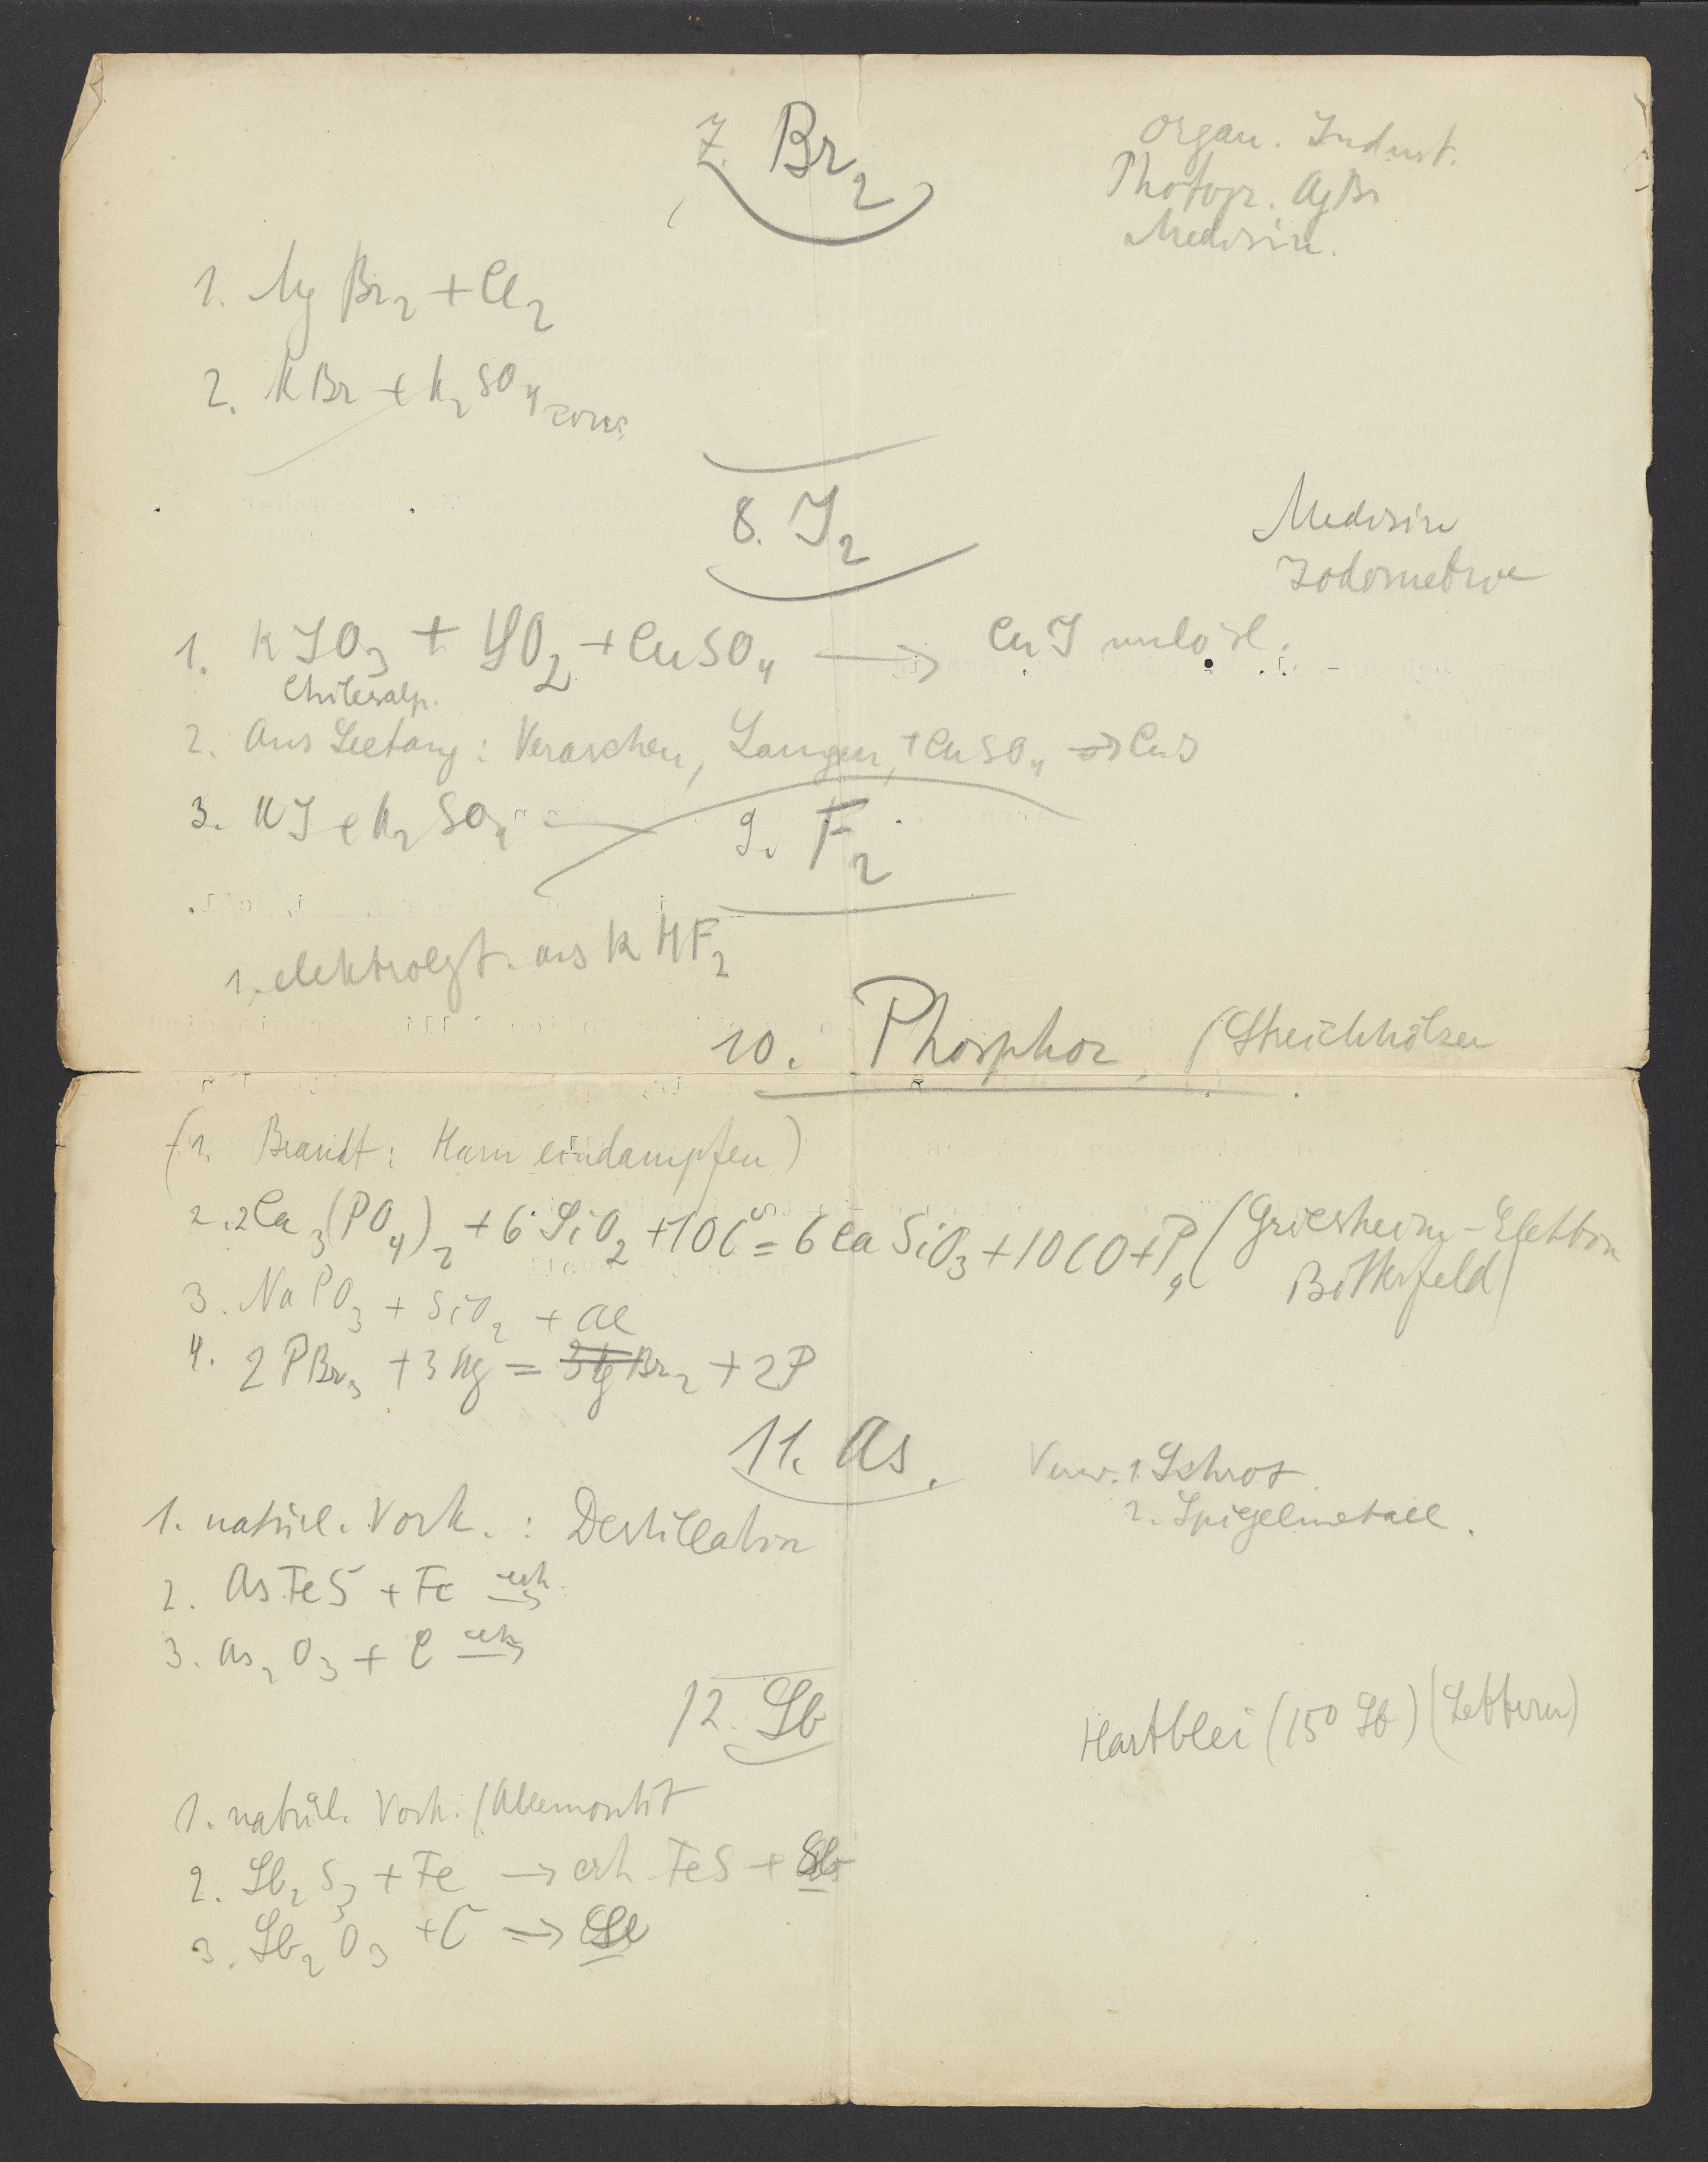 7. Br2
organ. Indust.
Photogr. AgBr
Medizin.
1. MgBr2 + Cl2
2. KBr + H2SO4 conc
8. J2
Medizin
Jodometrie
1. KJO3 + SO2 + CuSO4 → CuJ unlösl.
Chilesalp.
2. Aus Seetang: Veraschen, Laugen, + CuSO4 → CuJ
3. KJ + H2SO4
9. F2
1. elektrolyt. aus KHF2
10. Phosphor (Streichhölzer
(1. Brandt: Harn eindampfen)
2. 2Ca3(PO4)2 + 6 SiO2 + 10C = 6CaSiO3 + 10CO + P4 (Griesheim-Elektron
Bitterfeld)
3. NaPO3 + SiO2 + Al
4. 2PBr3 + 3Hg = 3HgBr2 + 2P
11. As.
Verw. 1. Schrot
2. Spiegelmetall.
1. natürl. Vork. : Destillation
2. AsFeS + Fe erh. →
3. As2O3 + C erh →
12. Sb
Hartblei (15% Sb) (Lettern)
1. natürl. Vork. (Allemontit
2. Sb2S3 + Fe → erh FeS + Sb
3. Sb2O3 + C → Sb